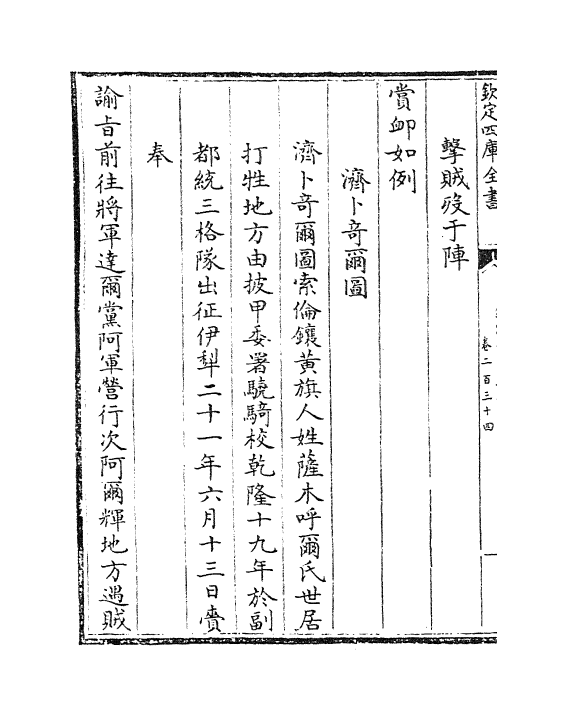 欽定四庫全書
卷二百三十四
擊賊歿于陣
賞卹如例
濟卜竒爾圖
濟卜竒爾圖索倫鑲黄旗人姓薩木呼爾氏世居
打牲地方由披甲委署驍騎校乾隆十九年於副
都統三格隊出征伊犂二十一年六月十三日賫
奉
諭旨前往將軍達爾黨阿軍營行次阿爾輝地方遇賊